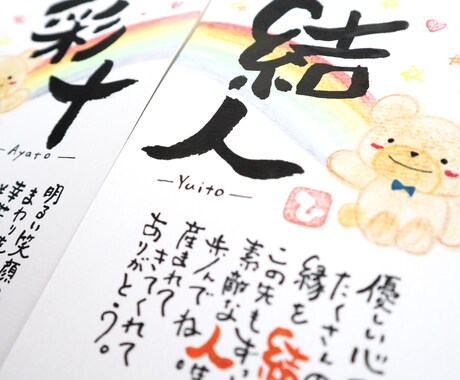 彩十
-Ayato-
明るい笑顔
まわり
結人
-Yuito-
優しい心
たくさんの
縁を結
この先もずっ
素敵な人生
歩んでね。
産まれて
きてくれて
ありがとう。